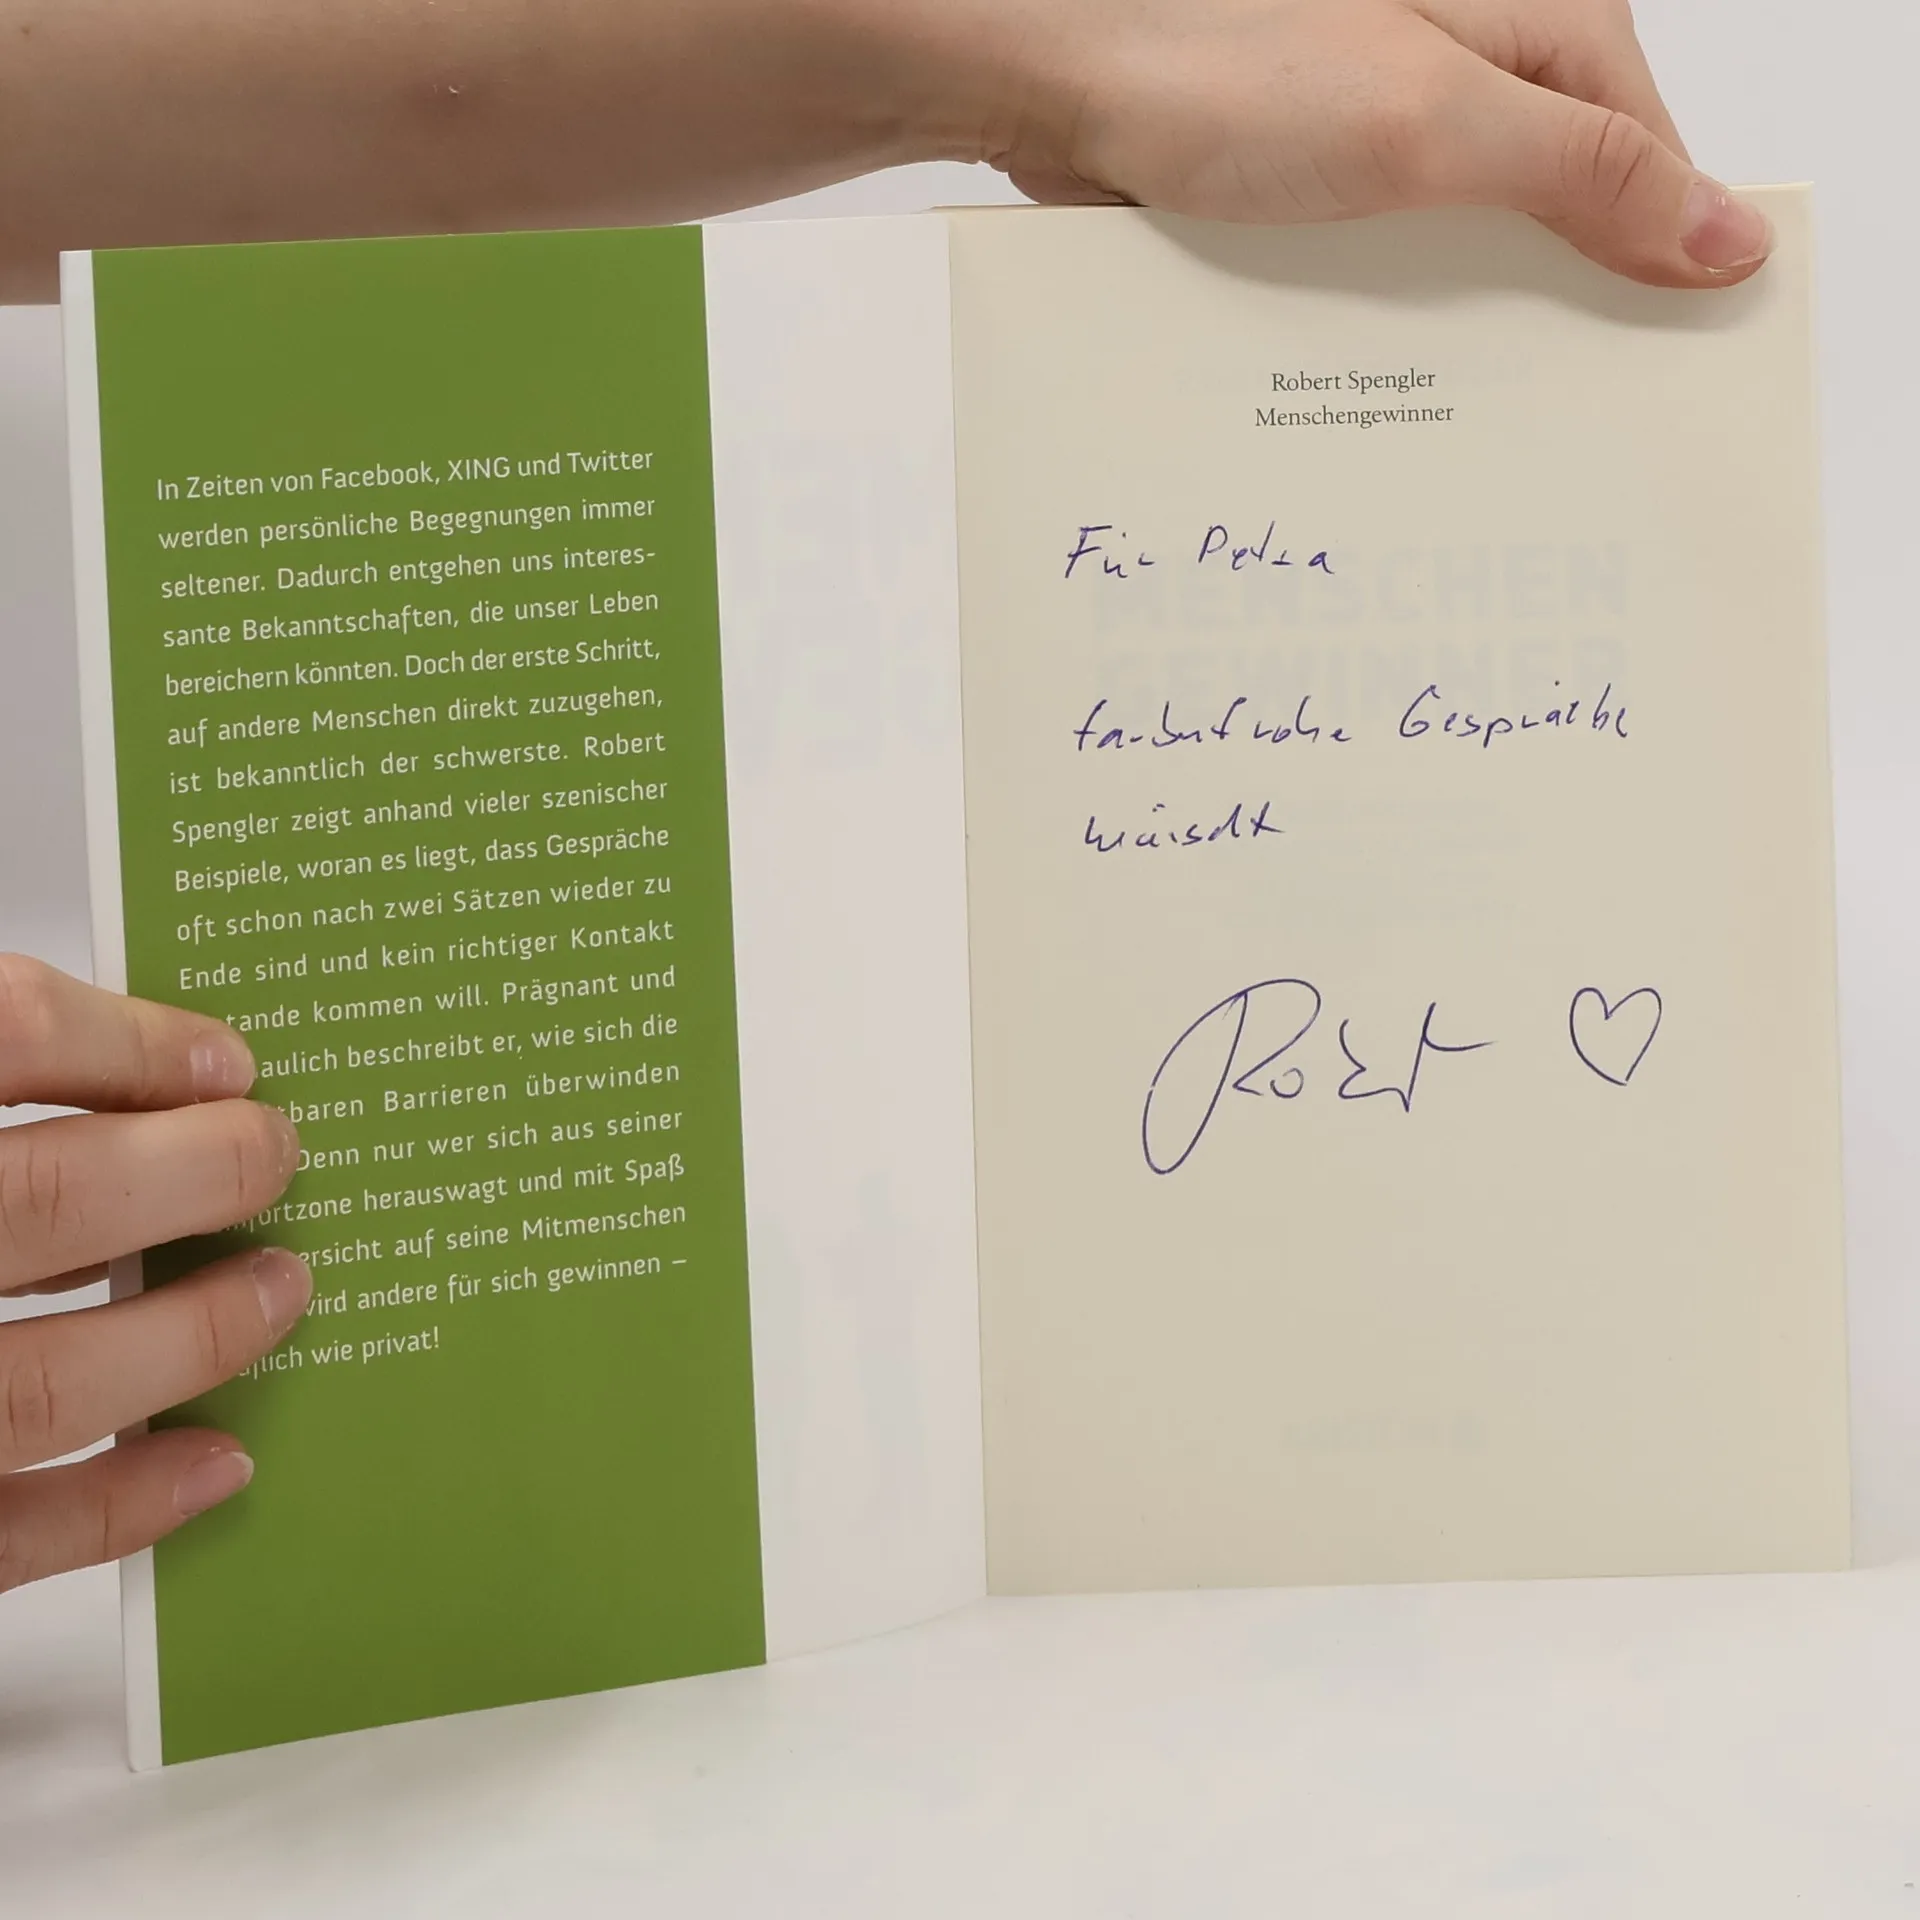 In Zeiten von Facebook, XING und Twitter
werden persönliche Begegnungen immer
seltener. Dadurch entgehen uns interes-
sante Bekanntschaften, die unser Leben
bereichern könnten. Doch der erste Schritt,
auf andere Menschen direkt zuzugehen,
ist bekanntlich der schwerste. Robert
Spengler zeigt anhand vieler szenischer
Beispiele, woran es liegt, dass Gespräche
oft schon nach zwei Sätzen wieder zu
Ende sind und kein richtiger Kontakt
tande kommen will. Prägnant und
aulich beschreibt er, wie sich die
tbaren Barrieren überwinden
Denn nur wer sich aus seiner
fortzone herauswagt und mit Spaß
ersicht auf seine Mitmenschen
wird andere für sich gewinnen –
flich wie privat!
Robert Spengler
Menschengewinner
Für Petra
farbenfrohe Gespräche
wünscht
Robert ♡